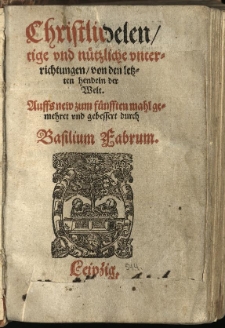 Christlidelen/
tige vnd nützliche vnter-
richtungen/ von den letz-
ten hendeln der
Welt.
Auffs new zum fünfften mahl ge-
mehret vnd gebessert durch
Basilium Fabrum.
Leipzig.